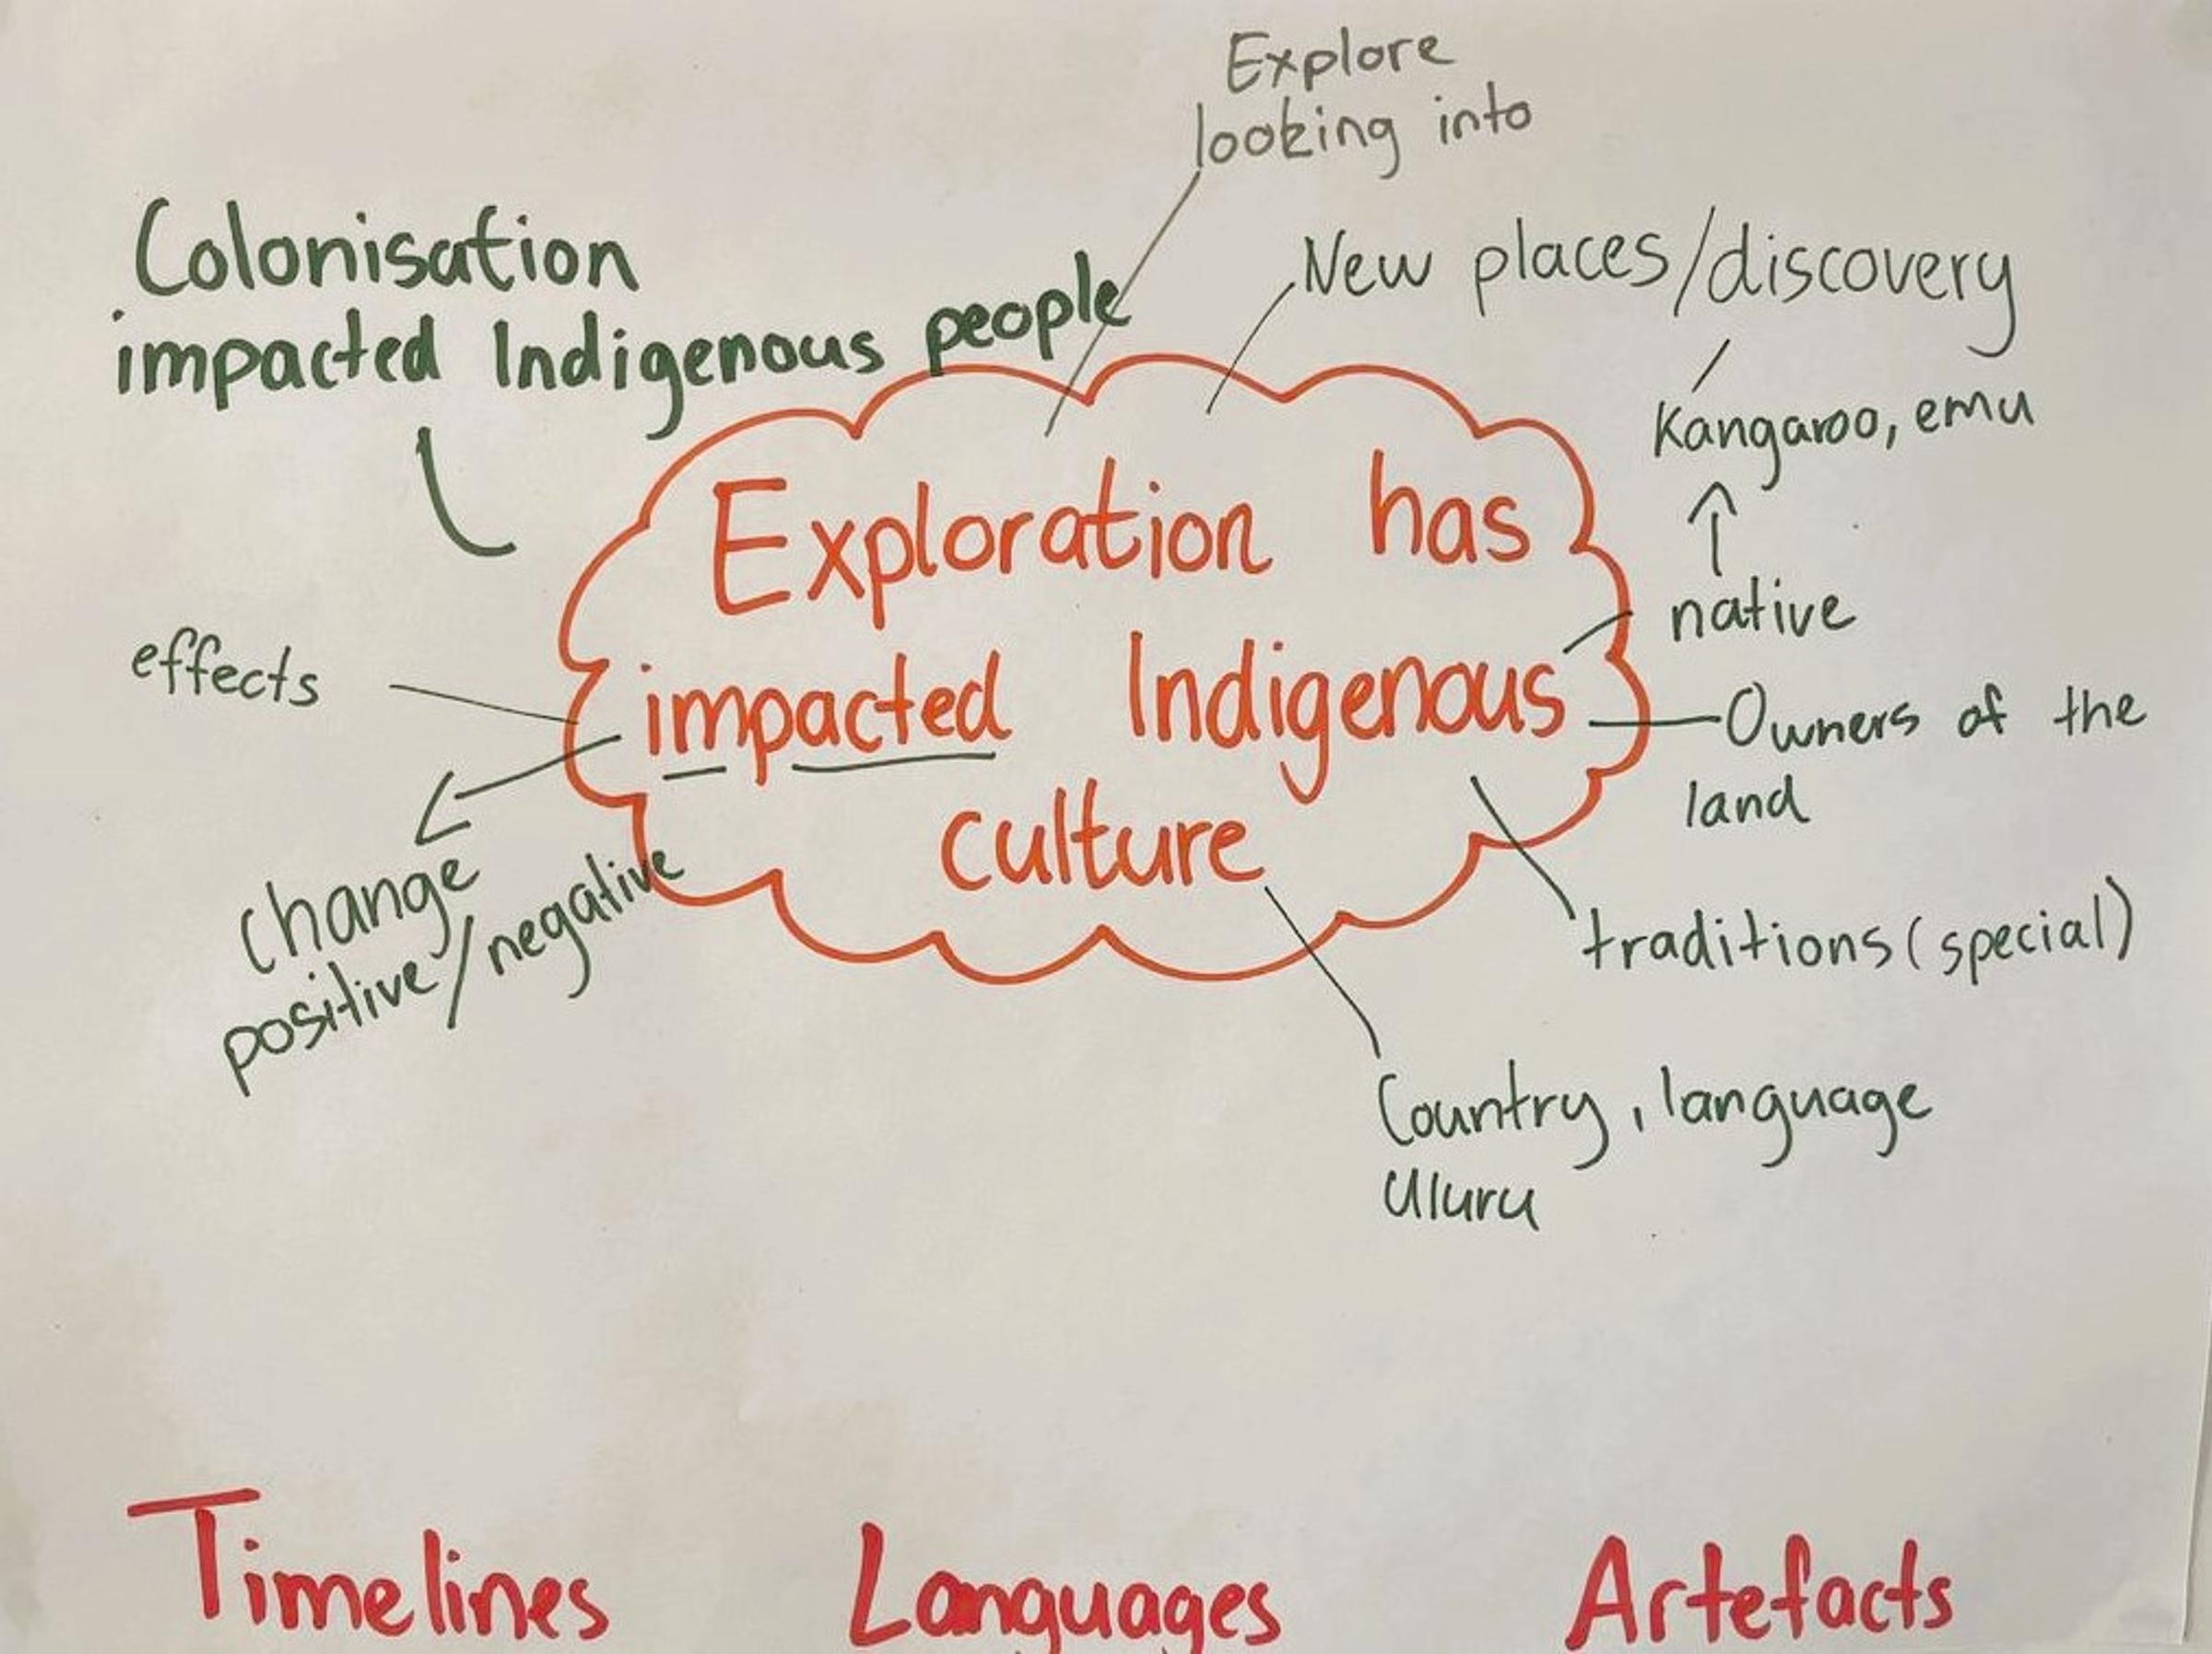 Explore
looking into
New places/discovery
Colonisation
impacted Indigenous people
Kangaroo, emu
Exploration has
native
effects
impacted Indigenous
Owners of the
land
culture
change
positive/negative
traditions (special)
Country, language
Uluru
Timelines Languages Artefacts